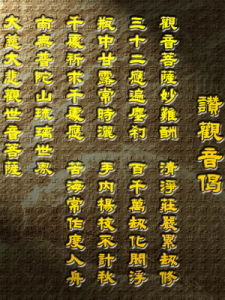 讚觀音偈
觀音菩薩妙難酬 清淨莊嚴累劫修
三十二應遍塵剎 百千萬劫化閻浮
瓶中甘露常時灑 手內楊枝不計秋
千處祈求千處應 苦海常作度人舟
南無普陀山琉璃世界
大慈大悲觀世音菩薩